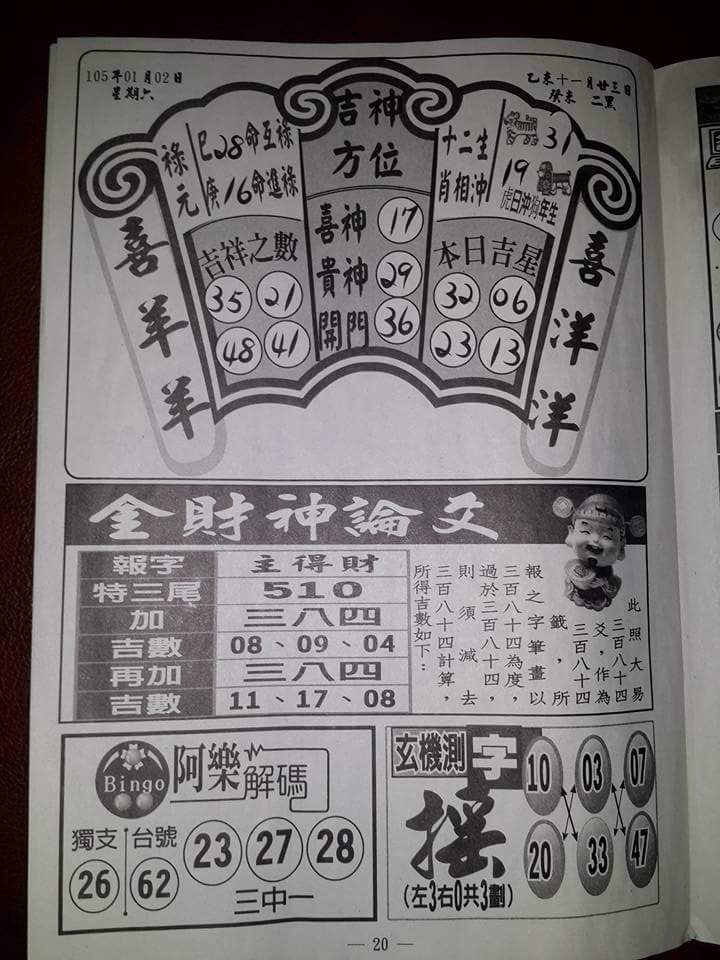 105年01月02日
星期六
乙未十一月廿三日
癸未 二黑
喜羊羊
祿元
巳28命互祿
庚16命進祿
吉祥之數
35 21
48 41
吉神
方位
喜神 17
貴神 29
開門 36
十二生
肖相沖
31
19
虎日沖狗年生
本日吉星
32 06
23 13
喜洋洋
金財神論爻
報字 主得財
特三尾 510
加 三八四
吉數 08、09、04
再加 三八四
吉數 11、17、08
此照大易
三百八十四
爻,作為
三百八十四
籤,所
報之字筆畫以
三百八十四為度,
過於三百八十四,
則須減去
三百八十四計算,
所得吉數如下:
Bingo
阿樂解碼
獨支 台號
26 62
23 27 28
三中一
玄機測字
搖
(左3右0共3劃)
10 03 07
20 33 47
— 20 —